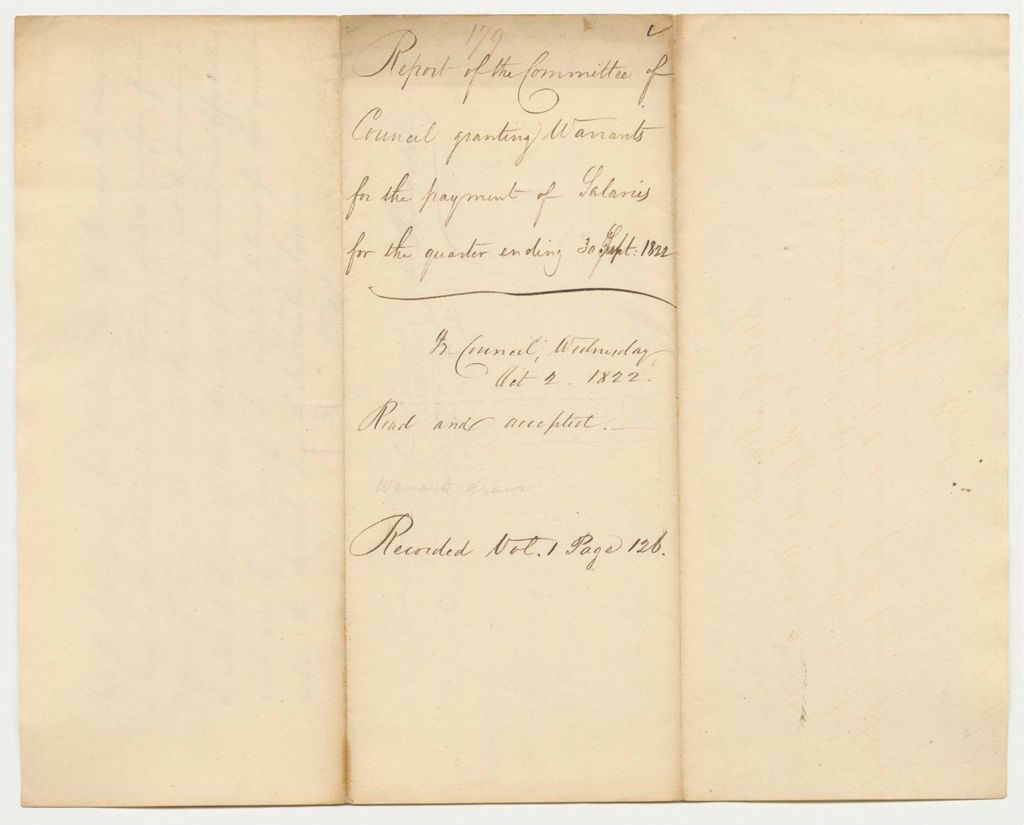 179
Report of the Committee of
Council granting Warrants
for the payment of Salaries
for the quarter ending 30 Sept. 1822
In Council, Wednesday,
Oct 2. 1822.
Read and accepted.
Warrants drawn
Recorded Vol. 1 Page 126.